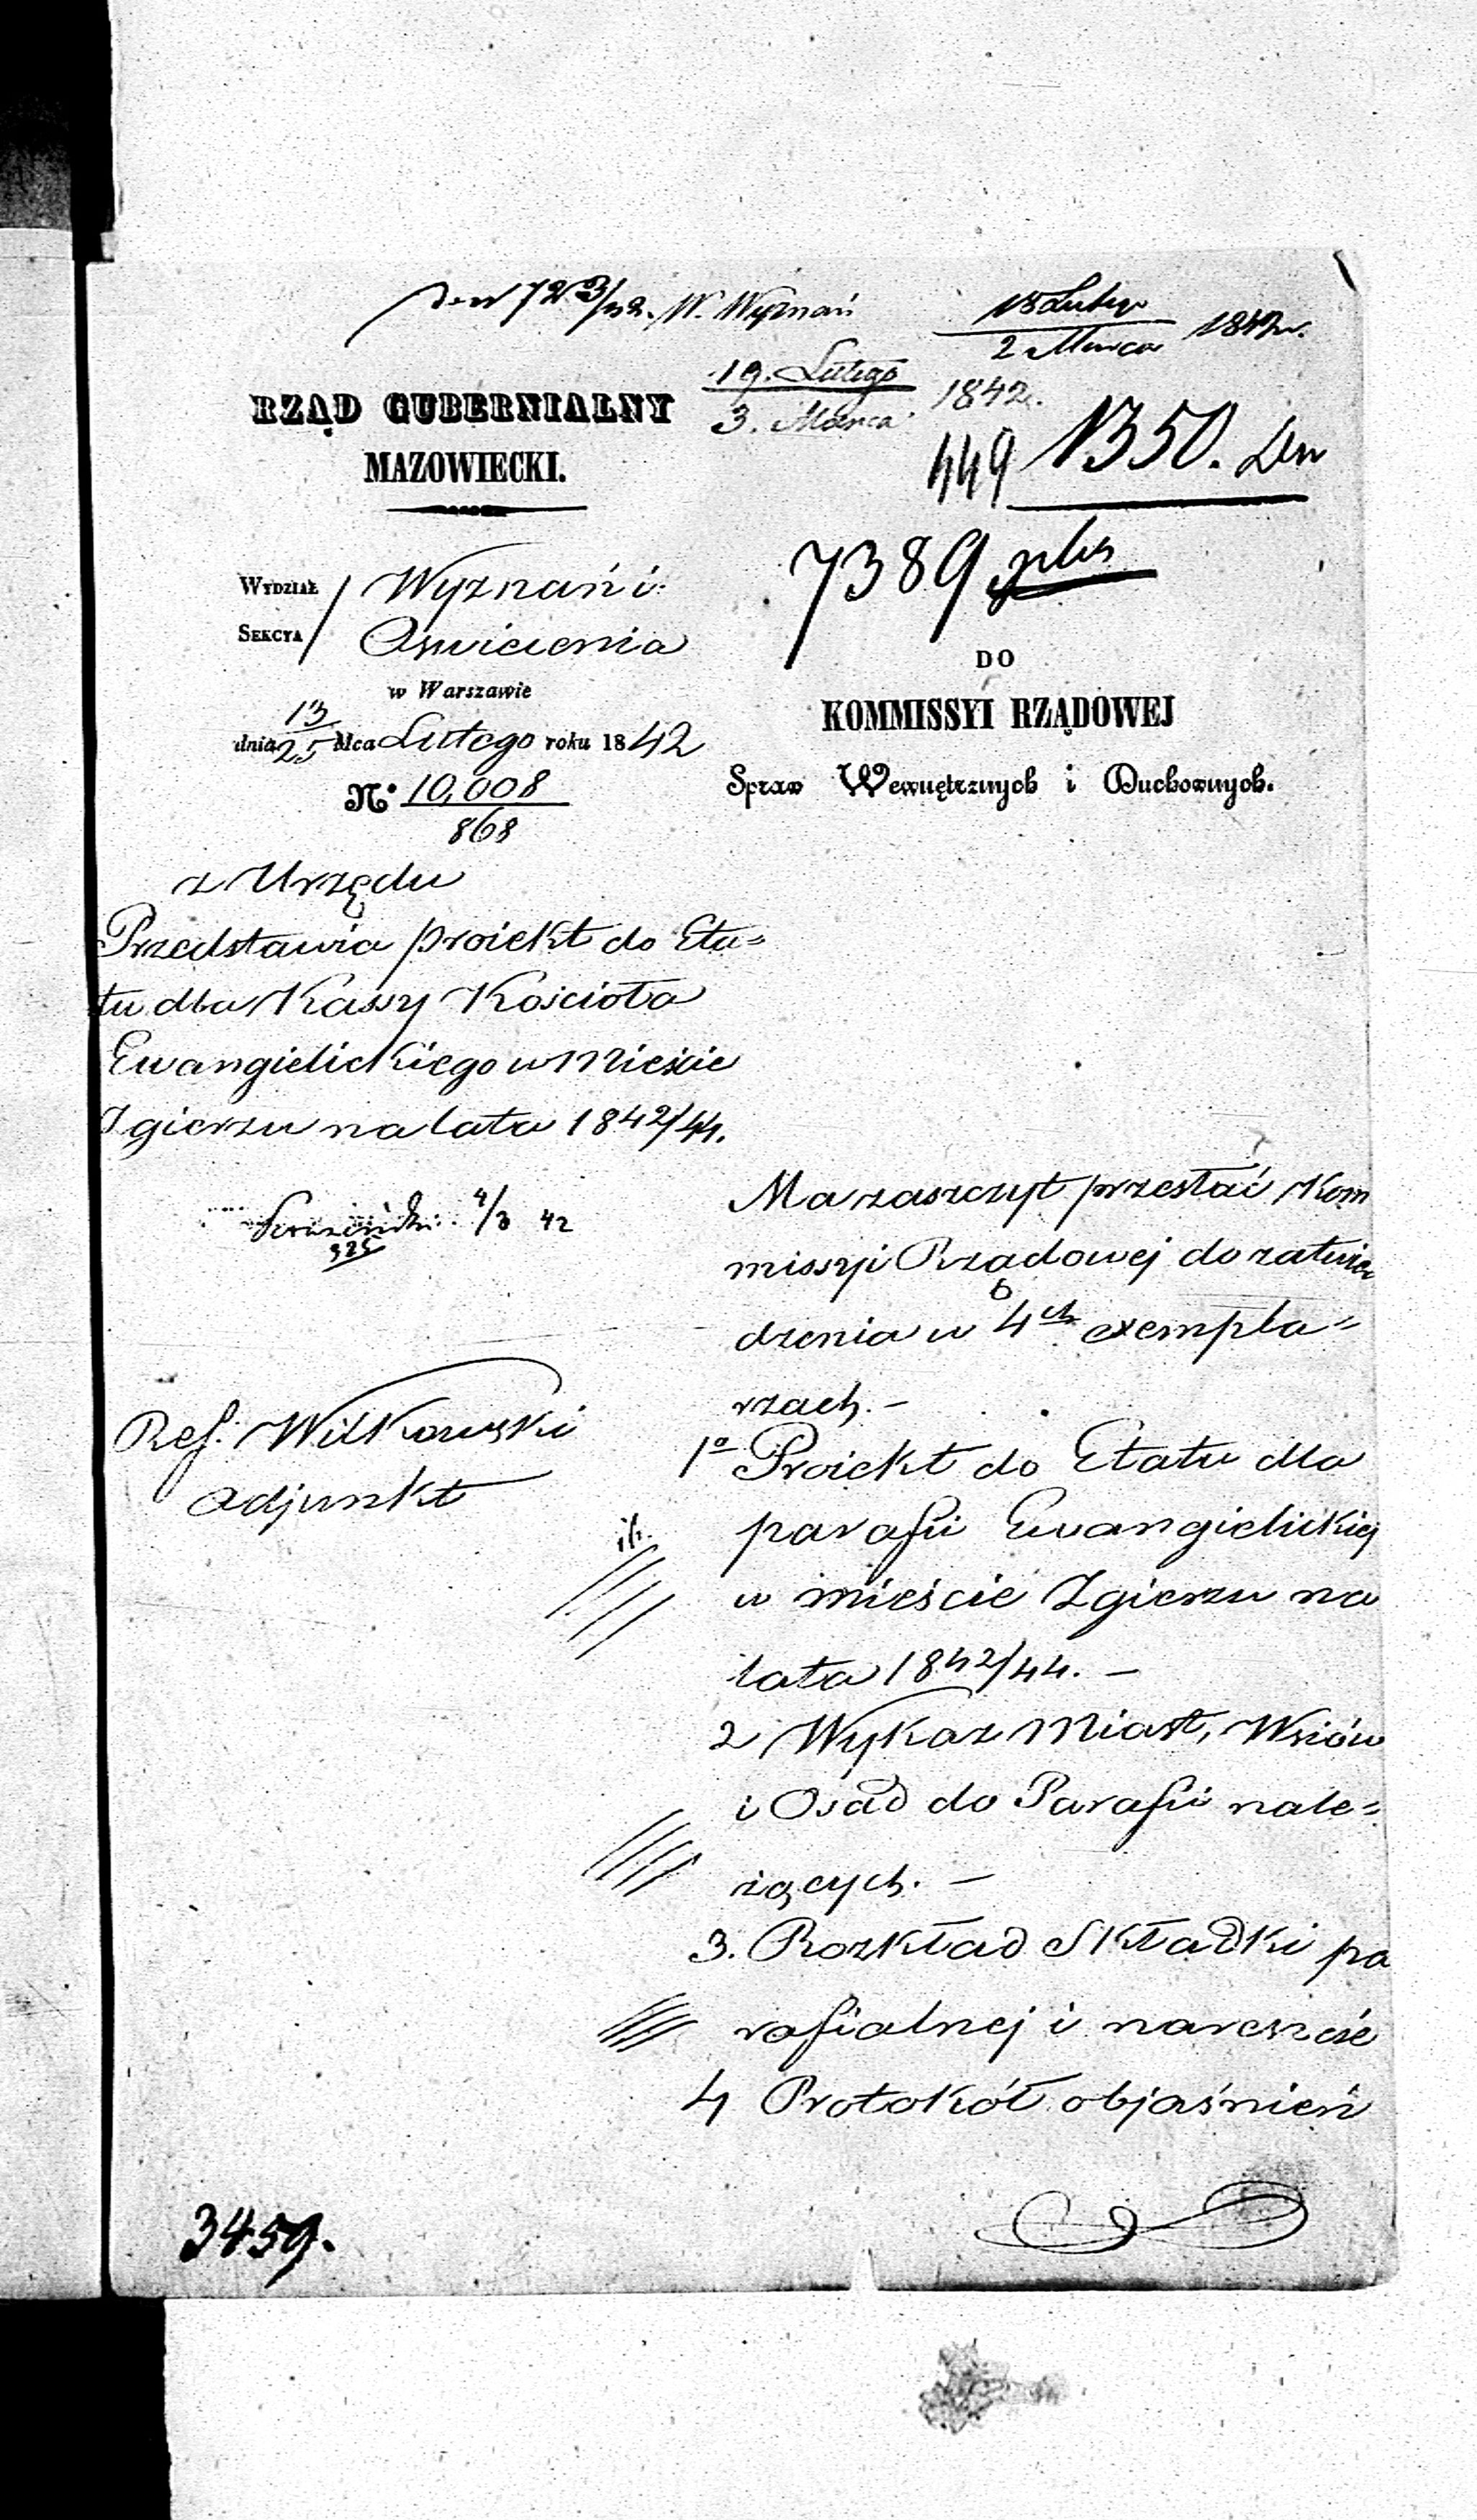 W. Wyznań
18 Lutego
2 Marca 1842 r.
19. Lutego
3. Marca 1842.
RZĄD GUBERNIALNY
MAZOWIECKI.
449 1350.
7389
WYDZIAŁ Wyznań i
SEKCYA Oswiecenia
w Warszawie
dnia 13/25 Mca Lutego roku 1842
N° 10,008
868
DO
KOMMISSYI RZĄDOWEJ
Spraw Wewnętrznych i Duchownych.
z Urzędu
Przedstawia proiekt do Eta=
tu dla Kassy Kościoła
Ewangielickiego w Mieście
Zgierzu na lata 1842/44.
4/3 42
Ref. Witkowski
adjunkt
Ma zaszczyt przesłać Kom
missyi Rządowej do zatwier
dzenia w 4ch exempla=
rzach. –
1° Proiekt do Etatu dla
parafii Ewangielickiej
w mieście Zgierzu na
lata 1842/44. –
2 Wykaz Miast, Wsiów
i Osad do Parafii nale=
żących. –
3. Rozkład Składki pa
rafialnej i nareszcie
4 Protokół objaśnień
3459.